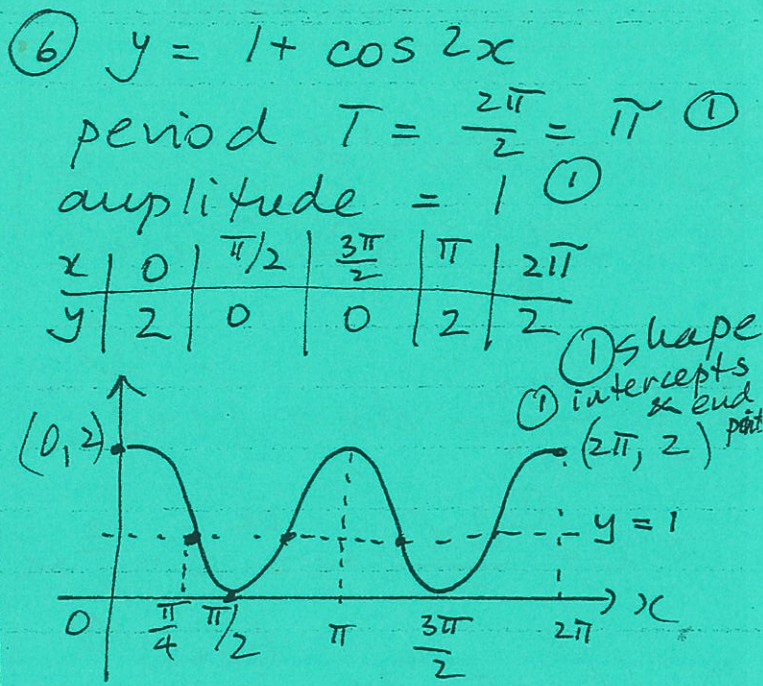 ⑥ y = 1 + cos 2x
period T = 2π/2 = π ①
amplitude = 1 ①
x | 0 | π/2 | 3π/2 | π | 2π
y | 2 | 0 | 0 | 2 | 2
① shape
① intercepts
& end
points
(0, 2)
(2π, 2)
y = 1
0 π/4 π/2 π 3π/2 2π x